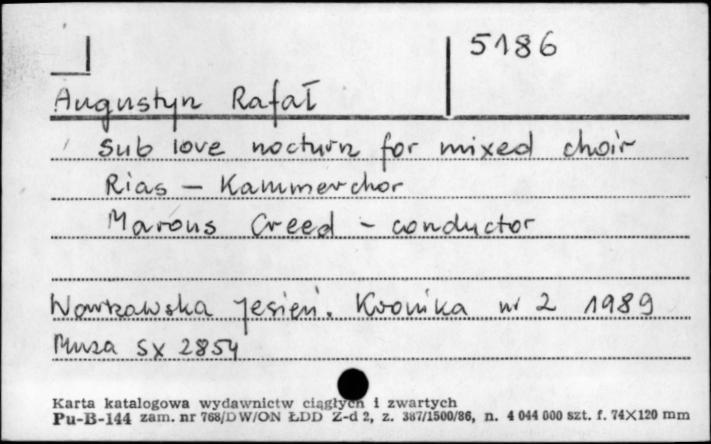 5186
Augustyn Rafał
Sub love nocturn for mixed choir
Rias – Kammerchor
Marcus Creed – conductor
Warszawska Jesień. Kronika nr 2 1989
Muza SX 2854
Karta katalogowa wydawnictw ciągłych i zwartych
Pu-B-144 zam. nr 768/DW/ON ŁDD Z-d 2, z. 387/1500/86, n. 4 044 000 szt. f. 74×120 mm